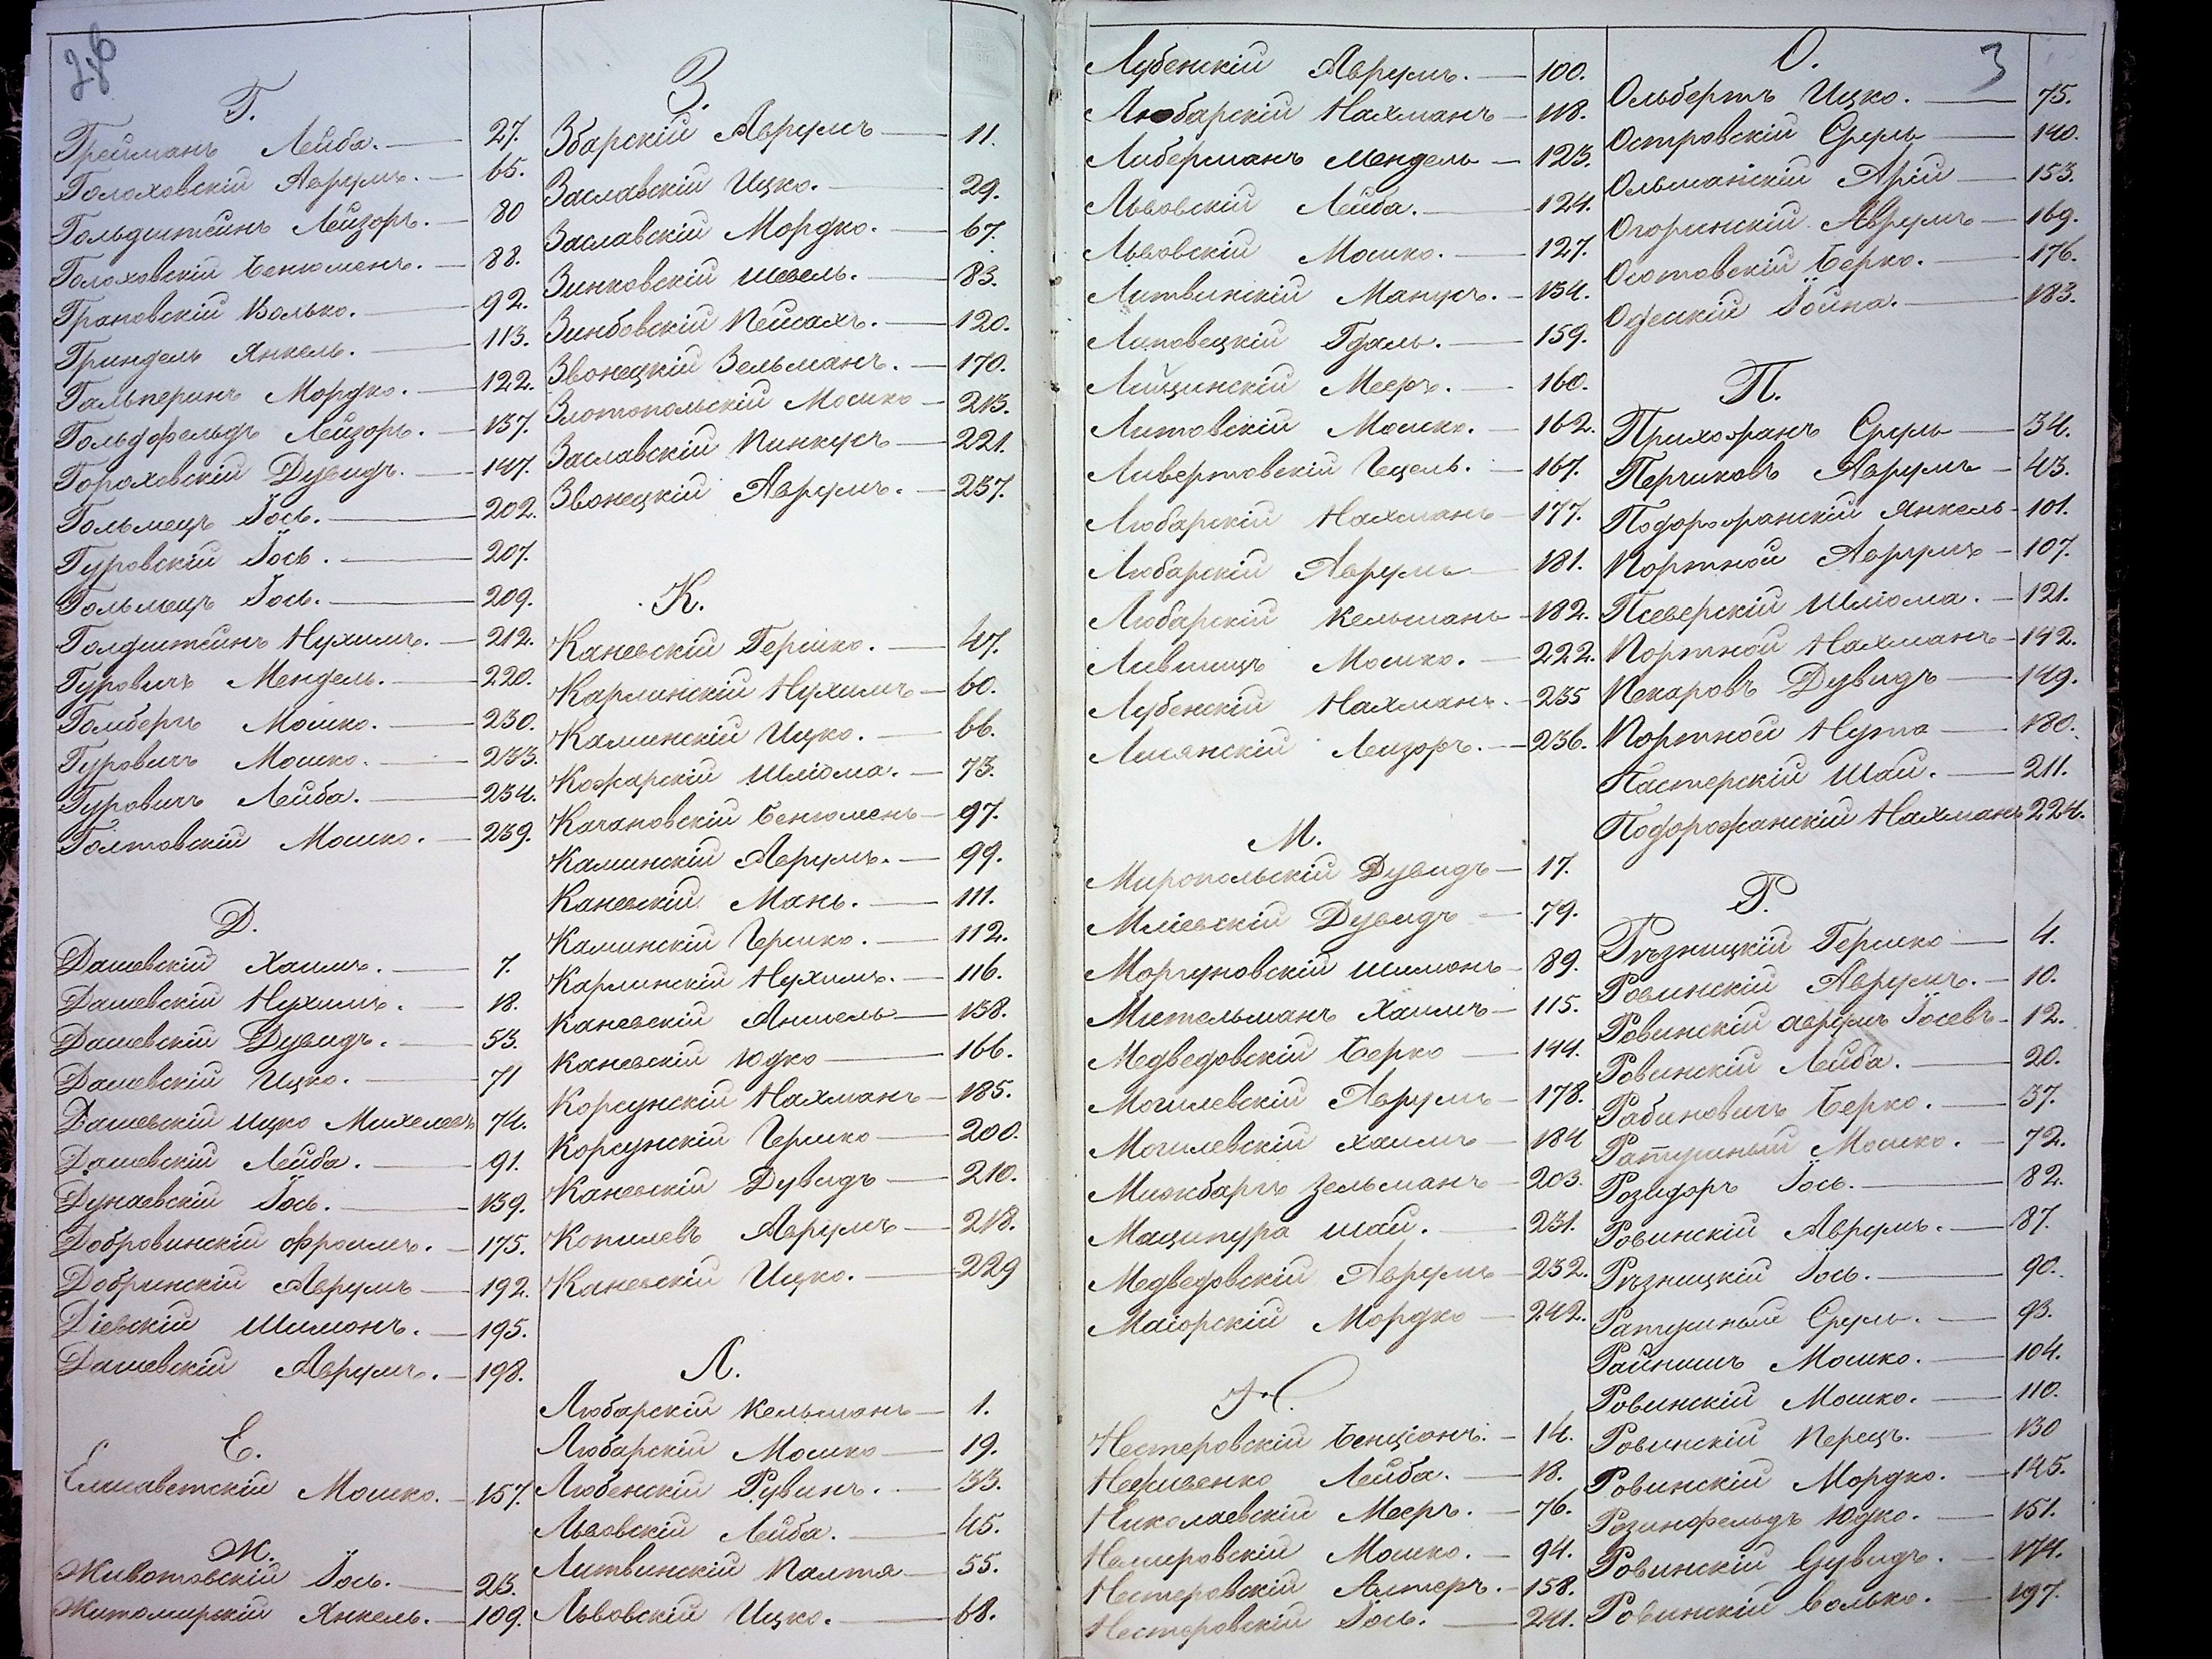 Г.
Грейманъ Лейба. — 27.
Голоховскій Аврумъ. — 65.
Гольдштейнъ Лейзоръ. — 80
Голоховскій Бенюменъ. — 88.
Грановскій Волько. — 92.
Гриндель Янкель. — 113.
Гальперинъ Мордко. — 122.
Гольдфельдъ Лейзоръ. — 137.
Гороховскій Дувидъ. — 147.
Гольмецъ Іось. — 202.
Гуровскій Іось. — 207.
Гольмецъ Іось. — 209.
Голдштейнъ Нухимъ. — 212.
Гуровичъ Мендель. — 220.
Голбергъ Мошко. — 230.
Гуровичъ Мошко. — 233.
Гуровичъ Лейба. — 234.
Голтовскій Мошко. — 239.
Д.
Дашевскій Хаимъ. — 7.
Дашевскій Нухимъ. — 18.
Дашевскій Дувидъ. — 53.
Дашевскій Ицко. — 71
Дашевскій Ицко Михелевъ 74.
Дашевскій Лейба. — 91.
Дунаевскій Іось. — 139.
Добровинскій Фроимъ. — 175.
Добринскій Аврумъ — 192.
Діевскій Шимонъ. — 195.
Дашевскій Аврумъ. — 198.
Е.
Елисаветскій Мошко. — 157.
Ж.
Животовскій Іось. — 23.
Житомирскій Янкель. — 109.
З.
Збарскій Аврумъ — 11.
Заславскій Ицко. — 29.
Заславскій Мордко. — 67.
Зинковскій Шевель. — 83.
Зинбовскій Пейсахъ. — 120.
Звонецкій Зельманъ. — 170.
Злотопольскій Мошко — 213.
Заславскій Пинкусъ — 221.
Звонецкій Аврумъ. — 237.
К.
Каневскій Гершко. — 47.
Карлинскій Нухимъ — 60.
Каминскій Ицко. — 66.
Кожарскій Шліома. — 73.
Качановскій Бенюменъ — 97.
Каминскій Аврумъ. — 99.
Каневскій Мань. — 111.
Каминскій Гершко. — 112.
Карлинскій Нухимъ. — 116.
Каневскій Аншель — 138.
Каневскій Юдко — 166.
Корсунскій Нахманъ — 185.
Корсунскій Гершко — 200.
Каневскій Дувидъ — 210.
Копилевъ Аврумъ — 218.
Каневскій Ицко. — 229
Л.
Любарскій Кельманъ — 1.
Любарскій Мошко — 19.
Любенскій Рувинъ. — 33.
Львовскій Лейба. — 45.
Литвинскій Палтя — 55.
Львовскій Ицко. — 68.
3
Лубенскій Аврумъ. — 100.
Любарскій Нахманъ — 118.
Либерманъ Мендель — 123.
Львовскій Лейба. — 124.
Львовскій Мошко. — 127.
Литвинскій Манусъ. — 134.
Липовецкій Гдаль. — 159.
Лищинскій Мееръ. — 160.
Литовскій Мошко. — 162.
Ливертовскій Гецель. — 167.
Любарскій Нахманъ — 177.
Любарскій Аврумъ — 181.
Любарскій Кельманъ — 182.
Лившицъ Мошко. — 222.
Лубенскій Нахманъ. — 235
Лисянскій Лейзоръ. — 236.
М.
Миропольскій Дувидъ — 17.
Мліевскій Дувидъ — 79.
Моргуновскій Шимонъ — 89.
Мительманъ Хаимъ — 115.
Медведовскій Берко — 144.
Могилевскій Аврумъ — 178.
Могилевскій Хаимъ — 184
Мижбаргъ Зельманъ — 203.
Маципура Шаи. — 231.
Медведовскій Аврумъ — 232.
Маіорскій Мордко — 242.
Н.
Нестеровскій Бенціонъ. — 14.
Лейба. — 18.
Николаевскій Мееръ. — 76.
Немировскій Мошко. — 94.
Нестеровскій Алтеръ. — 158.
Нестеровскій Іось. — 241.
О.
Ольбертъ Ицко. — 75.
Островскій Сруль — 140.
Ольманскій Арій — 153.
Огоринскій Аврумъ — 169.
Осотовскій Берко. — 176.
Одескій Іойна. — 183.
П.
Прихожанъ Сруль — 34.
Перчиковъ Аврумъ — 43.
Подорожанскій Янкель — 101.
Портной Аврумъ — 107.
Псеверскій Шліома. — 121.
Портной Нахманъ — 142.
Пекаровъ Дувидъ — 149.
Портной Нута — 180.
Пастерскій Шаи. — 211.
Подорожанскій Нахманъ 224.
Р.
Рѣзницкій Гершко — 4.
Ровинскій Аврумъ. — 10.
Ровинскій Аврумъ Іосевъ — 12.
Ровинскій Лейба. — 20.
Рабиновичъ Берко. — 37.
Ратушный Мошко. — 72.
Розидоръ Іось. — 82.
Ровинскій Аврумъ. — 87.
Рѣзницкій Іось. — 90.
Ратушный Сруль. — 93.
Райнишъ Мошко. — 104.
Ровинскій Мошко. — 110.
Ровинскій Перецъ. — 130
Ровинскій Мордко. — 145.
Розинфельдъ Юдко. — 151.
Ровинскій Дувидъ. — 174.
Ровинскій Волько. — 197.